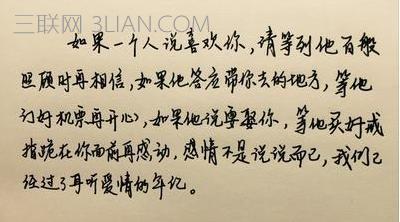 三联网 3LIAN.COM
如果一个人说喜欢你，请等到他百般
照顾时再相信，如果他答应带你去的地方，等他
订好机票再开心，如果他说要娶你，等他买好戒
指跪在你面前再感动，感情不是说说而已，我们已
经过了耳听爱情的年纪。